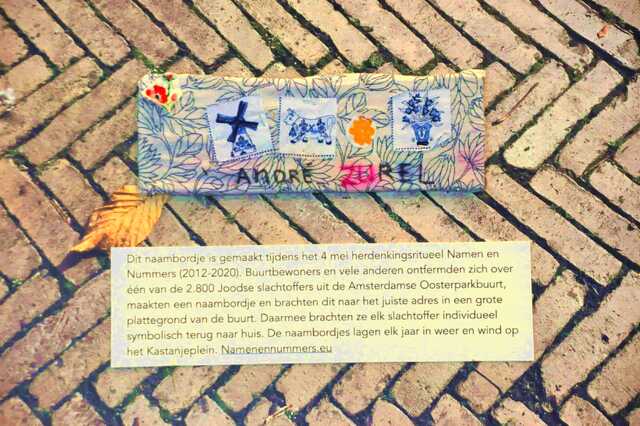 ANDRÉ ZUREL
Dit naambordje is gemaakt tijdens het 4 mei herdenkingsritueel Namen en
Nummers (2012-2020). Buurtbewoners en vele anderen ontfermden zich over
één van de 2.800 Joodse slachtoffers uit de Amsterdamse Oosterparkbuurt,
maakten een naambordje en brachten dit naar het juiste adres in een grote
plattegrond van de buurt. Daarmee brachten ze elk slachtoffer individueel
symbolisch terug naar huis. De naambordjes lagen elk jaar in weer en wind op
het Kastanjeplein. Namenennummers.eu